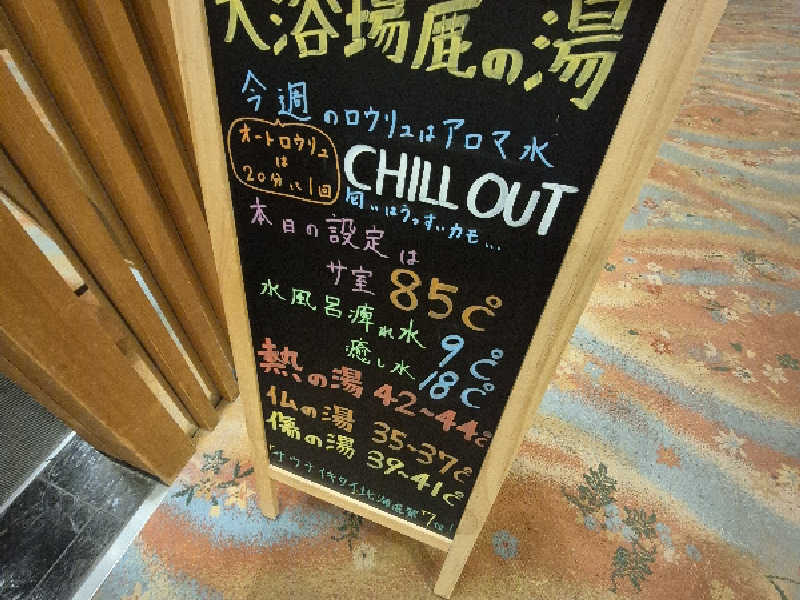 大浴場鹿の湯
今週のロウリュはアロマ水
オートロウリュ
は
20分に1回
CHILL OUT
匂いはうっすいカモ...
本日の設定は
サ室 85℃
水風呂痺れ水 9℃
癒し水 18℃
熱の湯 42~44℃
仏の湯 35~37℃
傷の湯 39~41℃
サウナイキタイ北海道第7位!